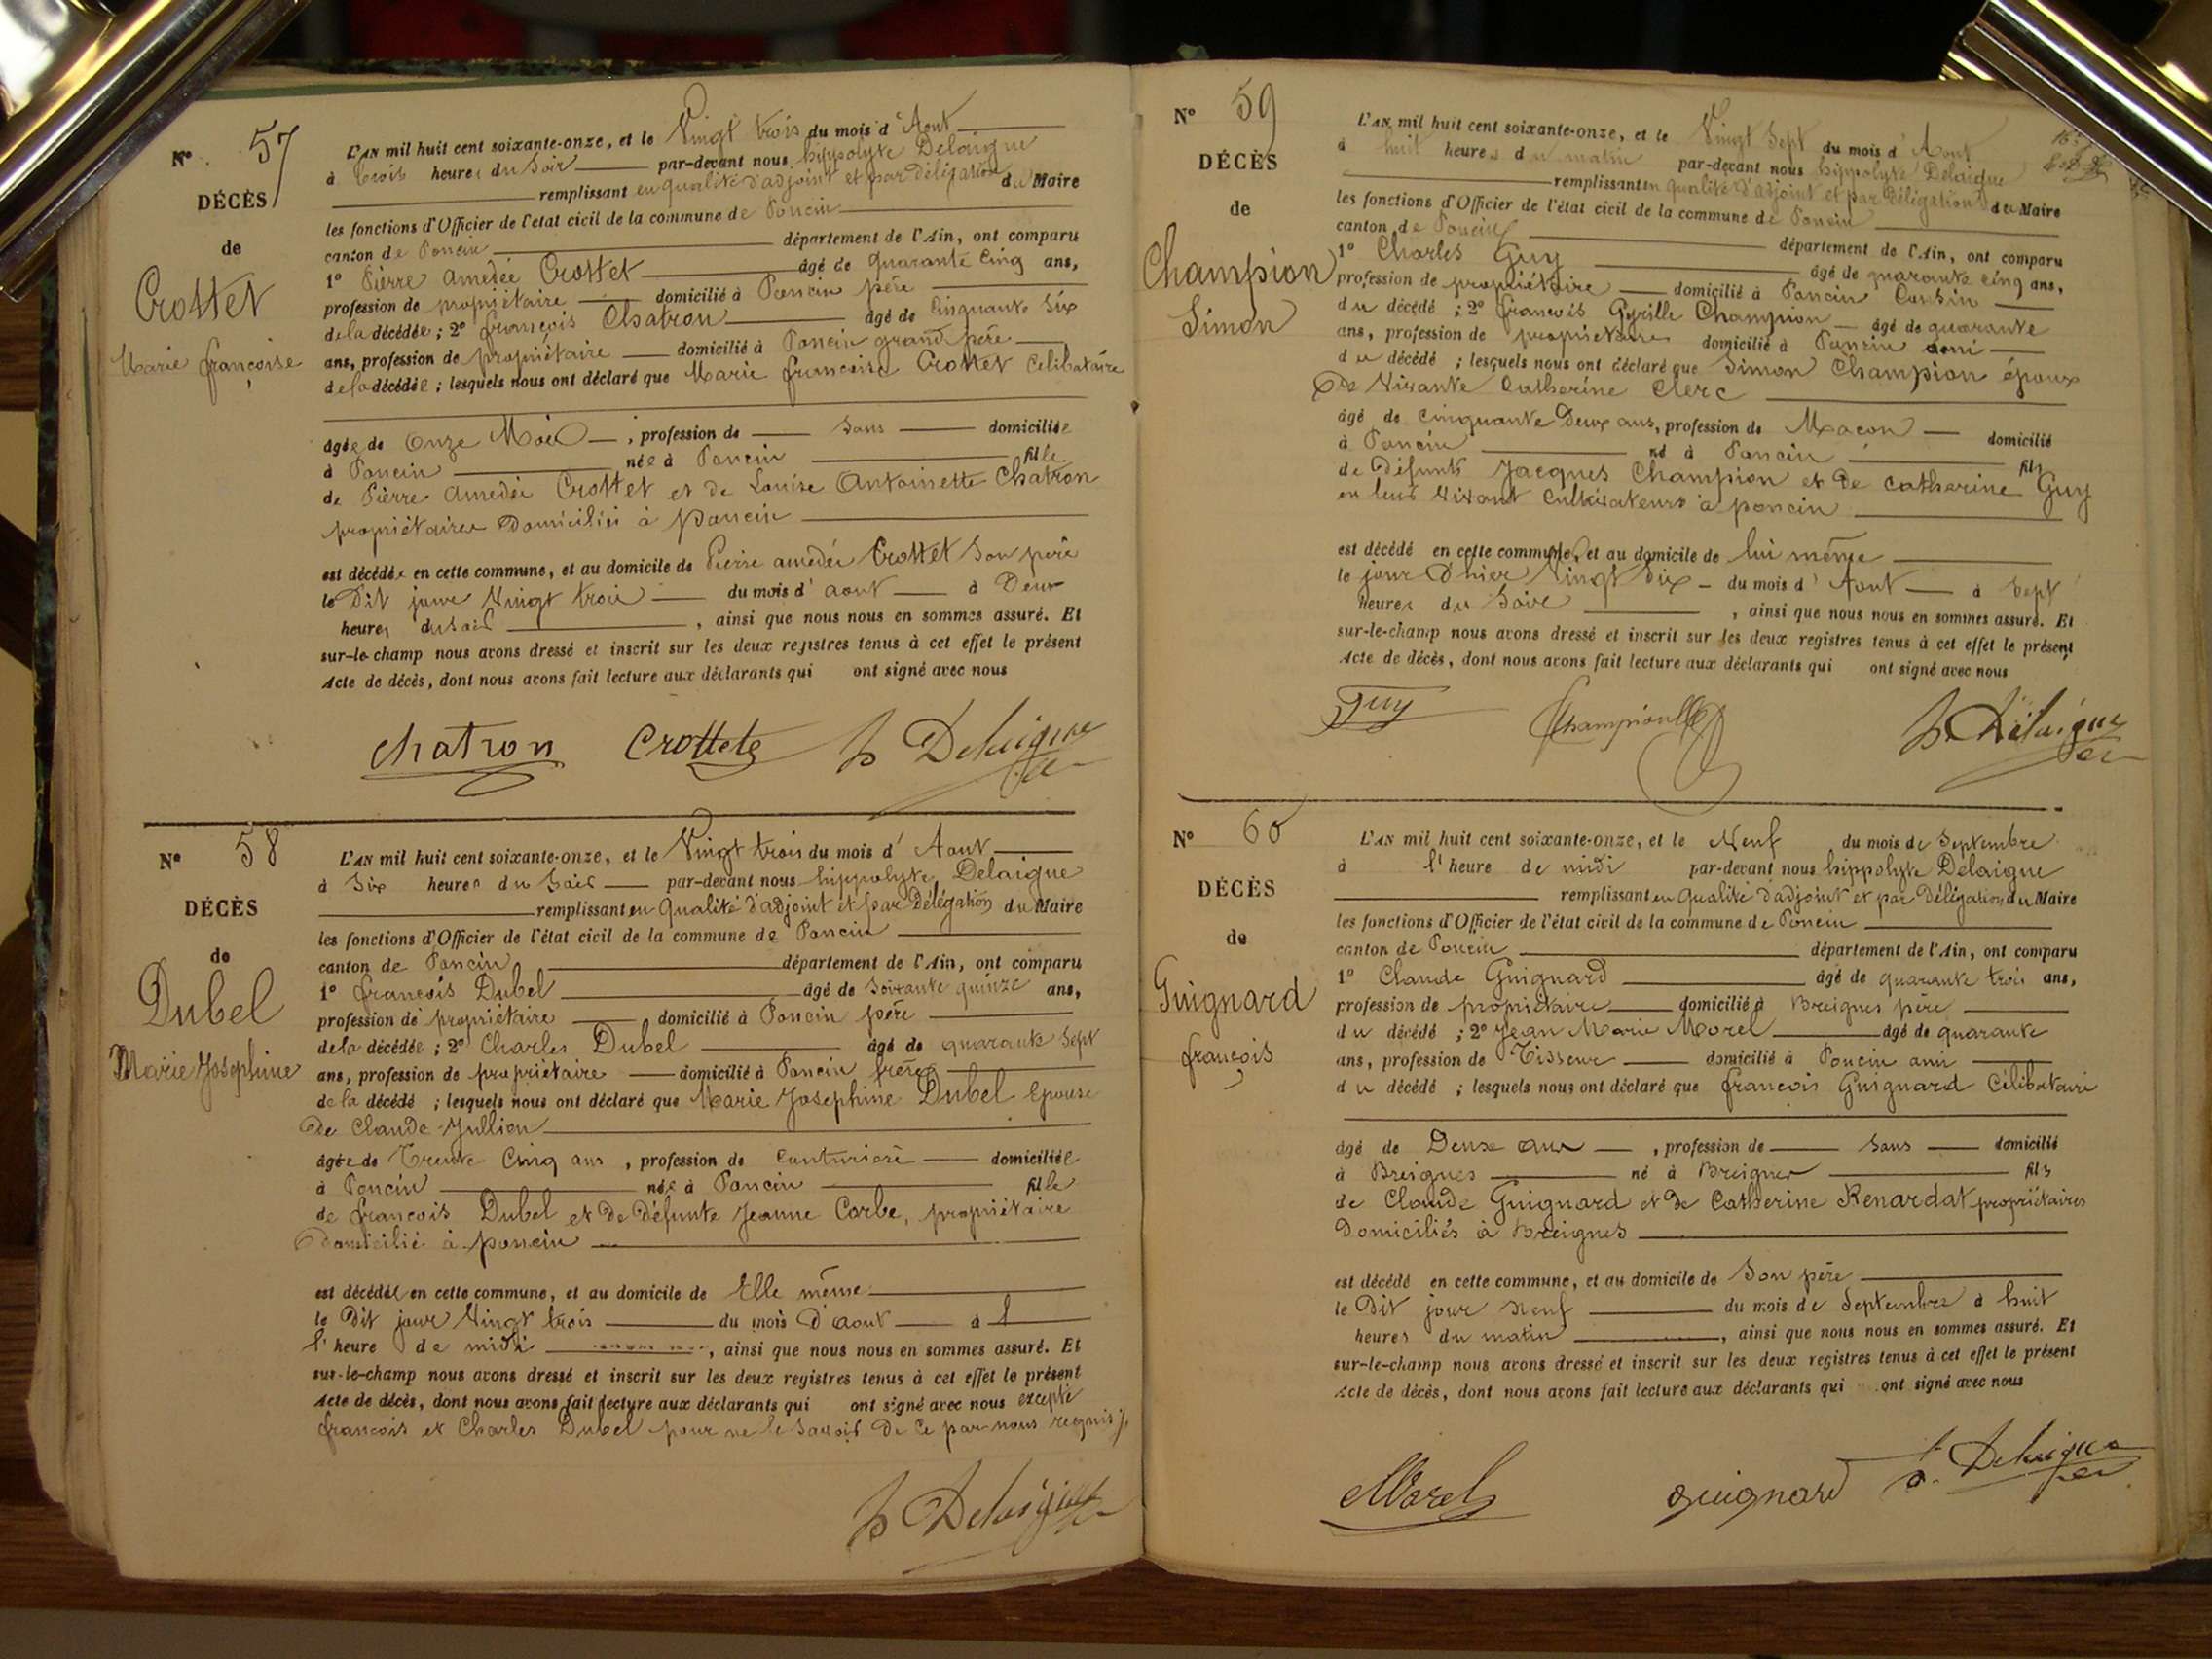 N° 57
DÉCÈS
de
Crottet
Marie françoise
L'AN mil huit cent soixante-onze, et le Vingt trois du mois d'Aout
à trois heures du Soir par-devant nous hippolyte Délaigue
remplissant en qualité d'adjoint et par délégation du Maire
les fonctions d'Officier de l'état civil de la commune de Poncin
canton de Poncin département de l'Ain, ont comparu
1° Pierre Amedée Crottet âgé de quarante Cinq ans,
profession de propriétaire domicilié à Poncin père
de la décédée ; 2° françois Chatron âgé de Cinquante Six
ans, profession de propriétaire domicilié à Poncin grand père
de la décédée ; lesquels nous ont déclaré que Marie françoise Crottet Célibataire
âgée de Onze Mois , profession de Sans domiciliée
à Poncin née à Poncin fille
de Pierre Amedée Crottet et de Louise Antoinette Chatron
propriétaires Domiciliés à Poncin
est décédée en cette commune, et au domicile de Pierre amédée Crottet Son père
le Dit jour Vingt trois du mois d'aout à Deux
heures du Soir , ainsi que nous nous en sommes assuré. Et
sur-le-champ nous avons dressé et inscrit sur les deux registres tenus à cet effet le présent
Acte de décès, dont nous avons fait lecture aux déclarants qui ont signé avec nous
Chatron Crottet h Delaigue
N° 58
DÉCÈS
de
Dubel
Marie Josephine
L'AN mil huit cent soixante-onze, et le Vingt trois du mois d'Aout
à Six heures du Soir par-devant nous hippolyte Delaigue
remplissant en Qualité d'adjoint et par Délégation du Maire
les fonctions d'Officier de l'état civil de la commune de Poncin
canton de Poncin département de l'Ain, ont comparu
1° françois Dubel âgé de Soixante quinze ans,
profession de propriétaire domicilié à Poncin père
de la décédée ; 2° Charles Dubel âgé de quarante Sept
ans, profession de propriétaire domicilié à Poncin frère
de la décédé ; lesquels nous ont déclaré que Marie Josephine Dubel Epouse
de Claude Jullien
âgée de Trente Cinq ans , profession de Couturière domiciliée
à Poncin née à Poncin fille
de françois Dubel et de Défunte Jeanne Corbe, propriétaire
Domicilié à Poncin
est décédée en cette commune, et au domicile de Elle même
le Dit jour Vingt trois du mois d'aout à
l'heure de midi , ainsi que nous nous en sommes assuré. Et
sur-le-champ nous avons dressé et inscrit sur les deux registres tenus à cet effet le présent
Acte de décès, dont nous avons fait lecture aux déclarants qui ont signé avec nous excepté
françois et Charles Dubel pour ne le Savoir De ce par nous requis
h Delaigue
N° 59
DÉCÈS
de
Champion
Simon
L'AN mil huit cent soixante-onze, et le Vingt Sept du mois d'Aout
à huit heures du matin par-devant nous hippolyte Delaigue
remplissant en qualité d'adjoint et par Délégation du Maire
les fonctions d'Officier de l'état civil de la commune de Poncin
canton de Poncin département de l'Ain, ont comparu
1° Charles Guy âgé de quarante cinq ans,
profession de propriétaire domicilié à Poncin Cousin
du décédé ; 2° françois Champion âgé de quarante
ans, profession de propriétaire domicilié à Poncin ami
du décédé ; lesquels nous ont déclaré que Simon Champion époux
De Vivante Catherine Clerc
âgé de Cinquante Deux ans, profession de Maçon domicilié
à Poncin né à Poncin fils
de Défunts Jacques Champion et De Catherine Guy
en leur Vivant Cultivateurs à poncin
est décédé en cette commune, et au domicile de lui même
le jour D'hier Vingt Six du mois d'Aout à Sept
heures du Soir , ainsi que nous nous en sommes assuré. Et
sur-le-champ nous avons dressé et inscrit sur les deux registres tenus à cet effet le présent
Acte de décès, dont nous avons fait lecture aux déclarants qui ont signé avec nous
Guy Champion h Délaigue
N° 60
DÉCÈS
de
Guignard
françois
L'AN mil huit cent soixante-onze, et le Neuf du mois de Septembre
à l'heure de midi par-devant nous hippolyte Délaigue
remplissant en Qualité d'adjoint et par Délégation du Maire
les fonctions d'Officier de l'état civil de la commune de Poncin
canton de Poncin département de l'Ain, ont comparu
1° Claude Guignard âgé de quarante trois ans,
profession de propriétaire domicilié à Breignes père
du décédé ; 2° Jean Marie Morel âgé de quarante
ans, profession de Tisseur domicilié à Poncin ami
du décédé ; lesquels nous ont déclaré que françois Guignard Célibataire
âgé de Deux ans , profession de Sans domicilié
à Breignes né à Breignes fils
de Claude Guignard et de Catherine Renardat propriétaires
Domiciliés à Breignes
est décédé en cette commune, et au domicile de Son père
le Dit jour Neuf du mois de Septembre à huit
heures du matin , ainsi que nous nous en sommes assuré. Et
sur-le-champ nous avons dressé et inscrit sur les deux registres tenus à cet effet le présent
Acte de décès, dont nous avons fait lecture aux déclarants qui ont signé avec nous
Morel guignard h Delaigue